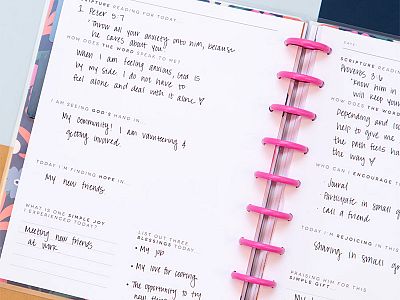 SCRIPTURE READING FOR TODAY...
1 Peter 5:7
"Throw all your anxiety onto him, because
he cares about you."
HOW DOES THE WORD SPEAK TO ME?
When I am feeling anxious, God is
by my side. I do not have to
feel alone and deal with it alone ♡
I AM SEEING GOD'S HAND IN...
My community! I am volunteering &
getting involved.
TODAY I'M FINDING HOPE IN...
My new friends
WHAT IS ONE SIMPLE JOY
I EXPERIENCED TODAY?
Meeting new friends
at work
LIST OUT THREE
BLESSINGS TODAY
• My job
• My love for cooking
• The opportunity to try
new
DATE
SCRIPTURE READING
Proverbs 3:6
"Know him in
will keep your
HOW DOES THE WORD
Depending and
help to give me
the path feels
the way ♡
WHO CAN I ENCOURAGE
- Journal
- Participate in small
- Call a friend
TODAY I'M REJOICING IN THIS
Sharing in small
PRAISING GOD FOR THIS
SIMPLE GIFT